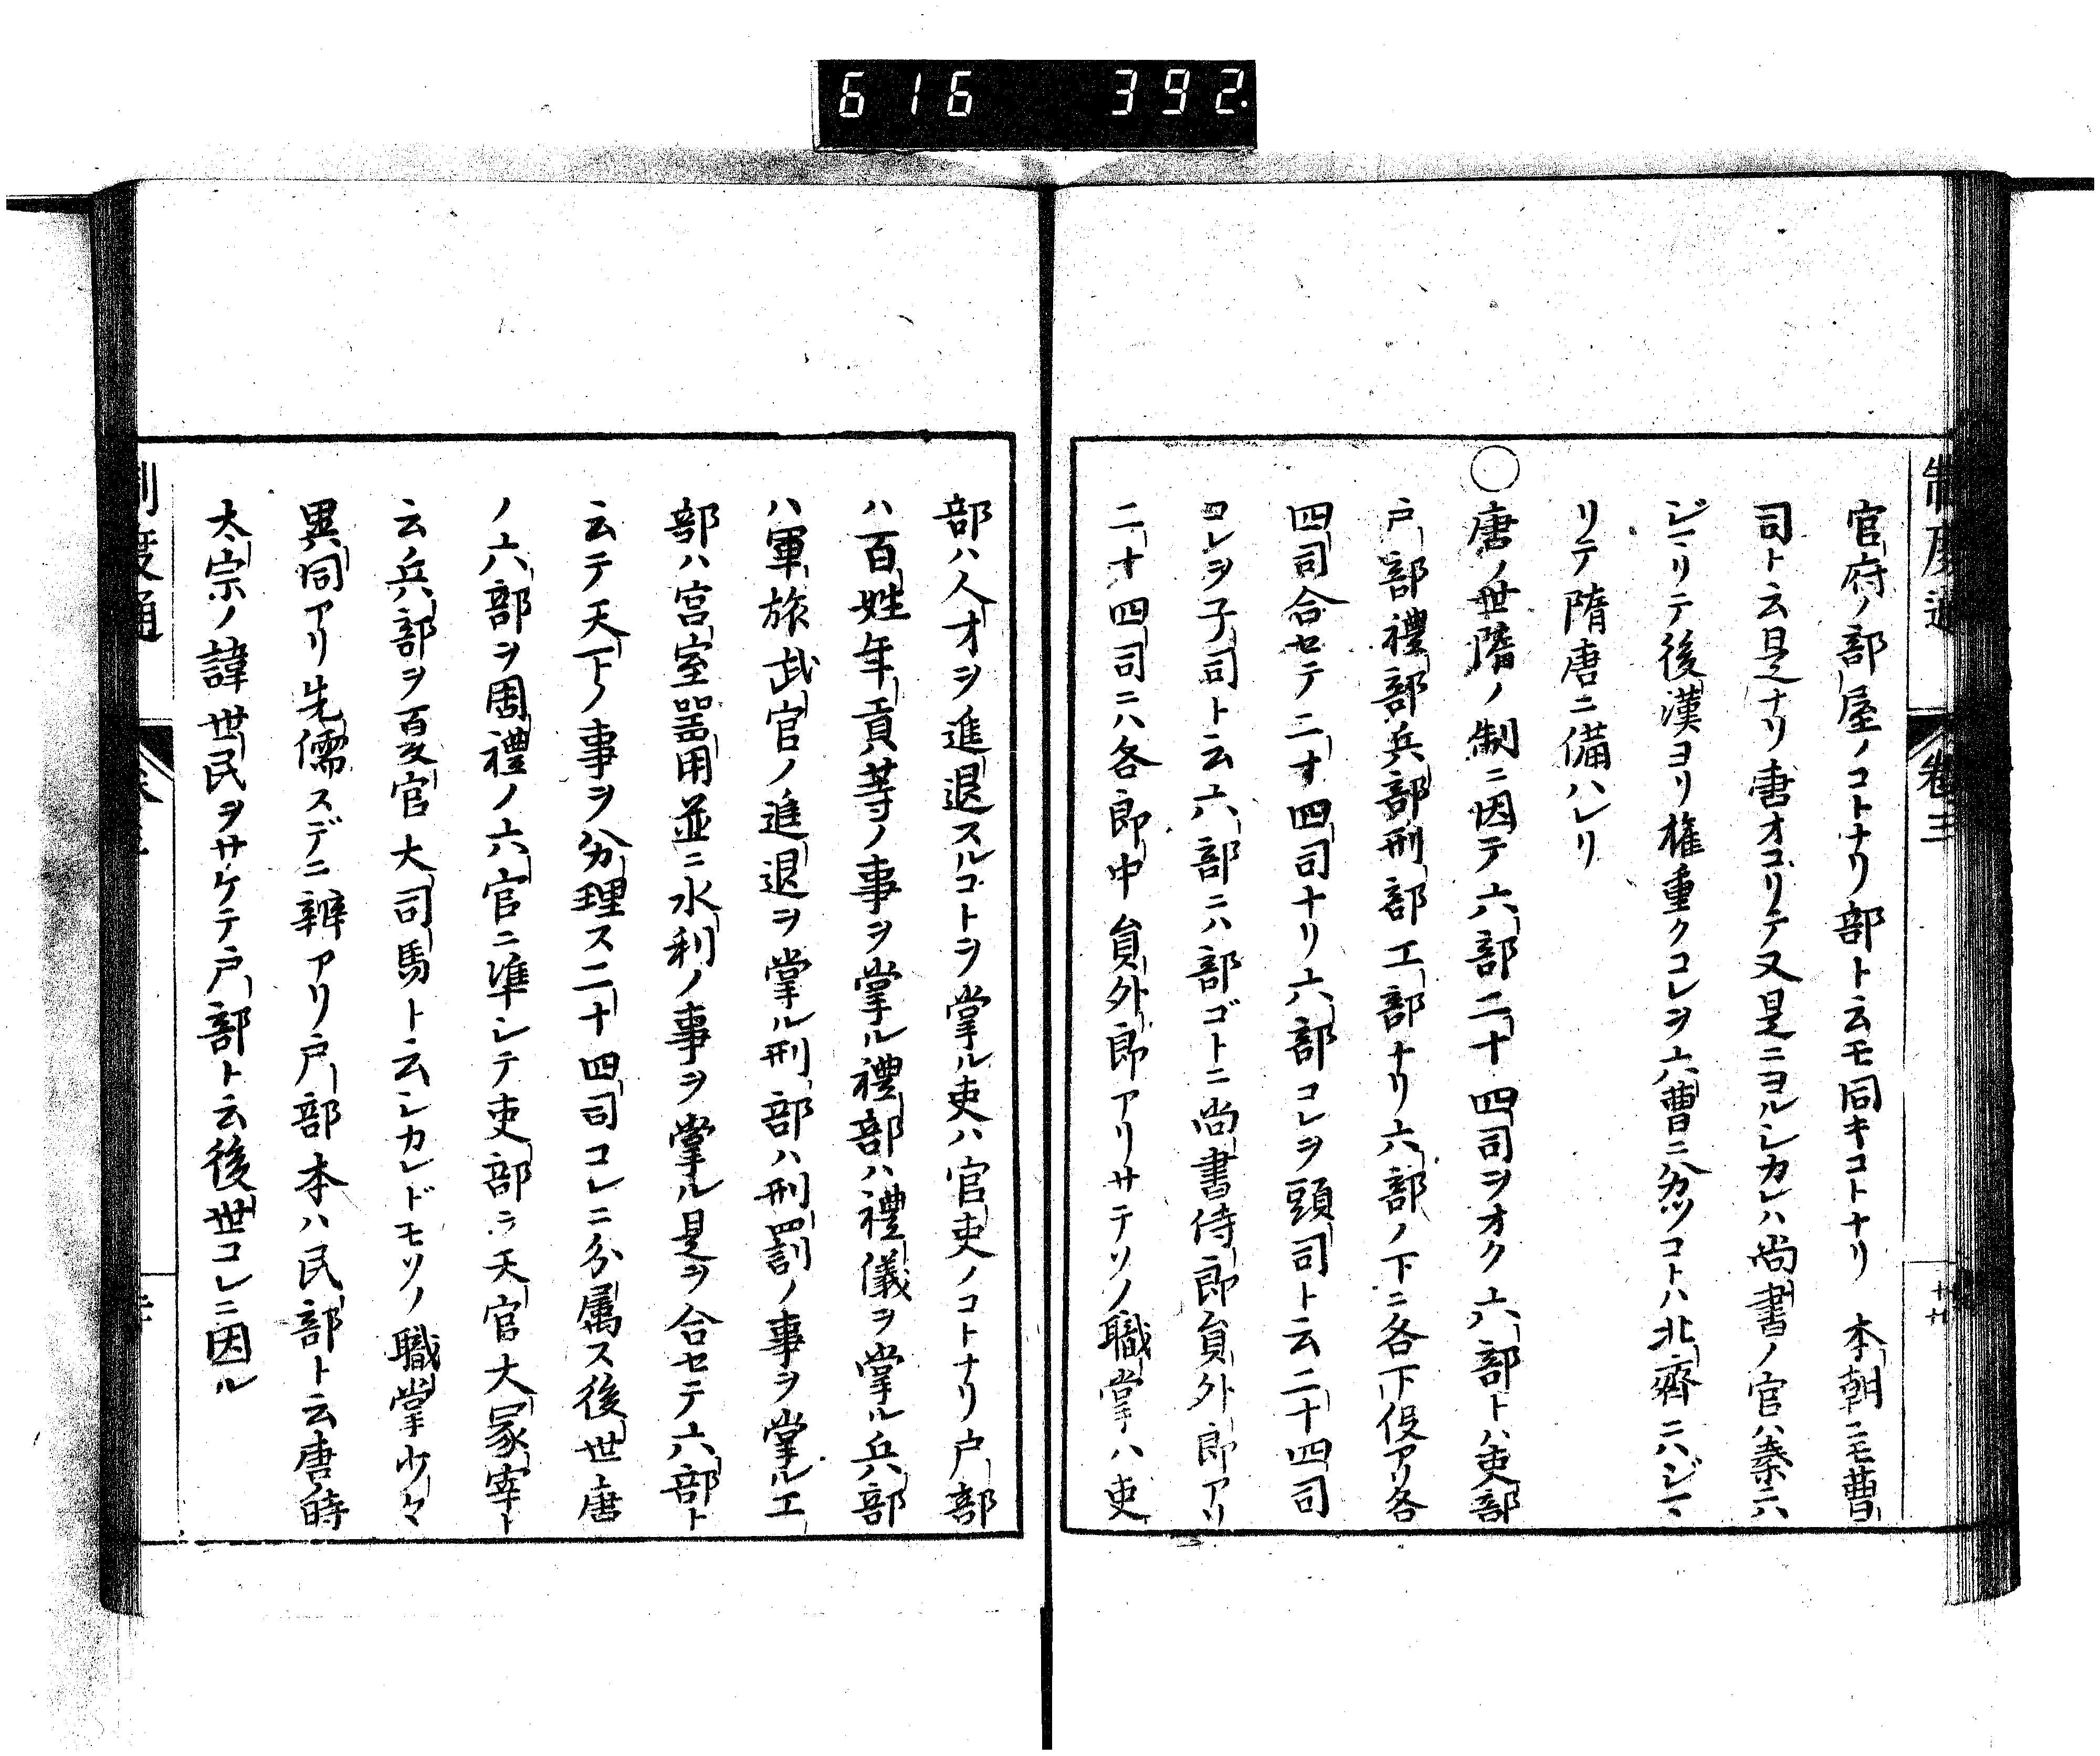 616 392
制度通 卷三
官府ノ部屋ノコトナリ部ト云モ同キコトナリ 本朝ニモ曹
司ト云是ナリ書オコリテ又是ニヨルシカレハ尚書ノ官ハ秦ニハ
ジマリテ後漢ヨリ権重クコレヲ六曹ニ分ツコトハ北齊ニハジマ
リテ隋唐ニ備ハレリ
○唐ノ世隋ノ制ニ因テ六部二十四司ヲオク六部トハ吏部
戸部禮部兵部刑部工部ナリ六部ノ下ニ各下役アリ各
四司合セテ二十四司ナリ六部コレヲ頭司ト云二十四司
コレヲ子司ト云六部ニハ部ゴトニ尚書侍郎員外郎アリ
二十四司ニハ各郎中員外郎アリサテソノ職掌ハ吏
部ハ人才ヲ進退スルコトヲ掌ル吏ハ官吏ノコトナリ戸部
ハ百姓年貢等ノ事ヲ掌ル禮部ハ禮儀ヲ掌ル兵部
ハ軍旅武官ノ進退ヲ掌ル刑部ハ刑罰ノ事ヲ掌ル工
部ハ宮室器用並ニ水利ノ事ヲ掌ル是ヲ合セテ六部ト
云テ天下ノ事ヲ分理ス二十四司コレニ分属ス後世唐
ノ六部ヲ周禮ノ六官ニ準シテ吏部ヲ天官大冢宰ト
云兵部ヲ夏官大司馬ト云シカレドモソノ職掌少々
異同アリ先儒スデニ辨アリ戸部本ハ民部ト云唐ノ時
太宗ノ諱世民ヲサケテ戸部ト云後世コレニ因ル
制度通